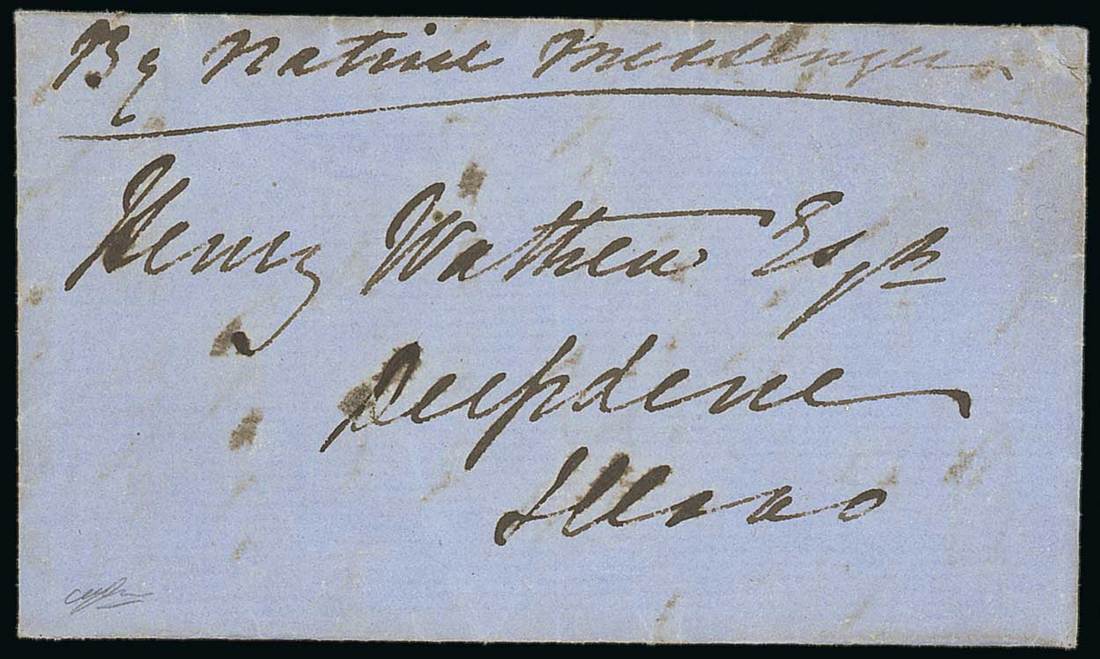 By Native Messenger.
Henry Wathen Esqr
Deepdene